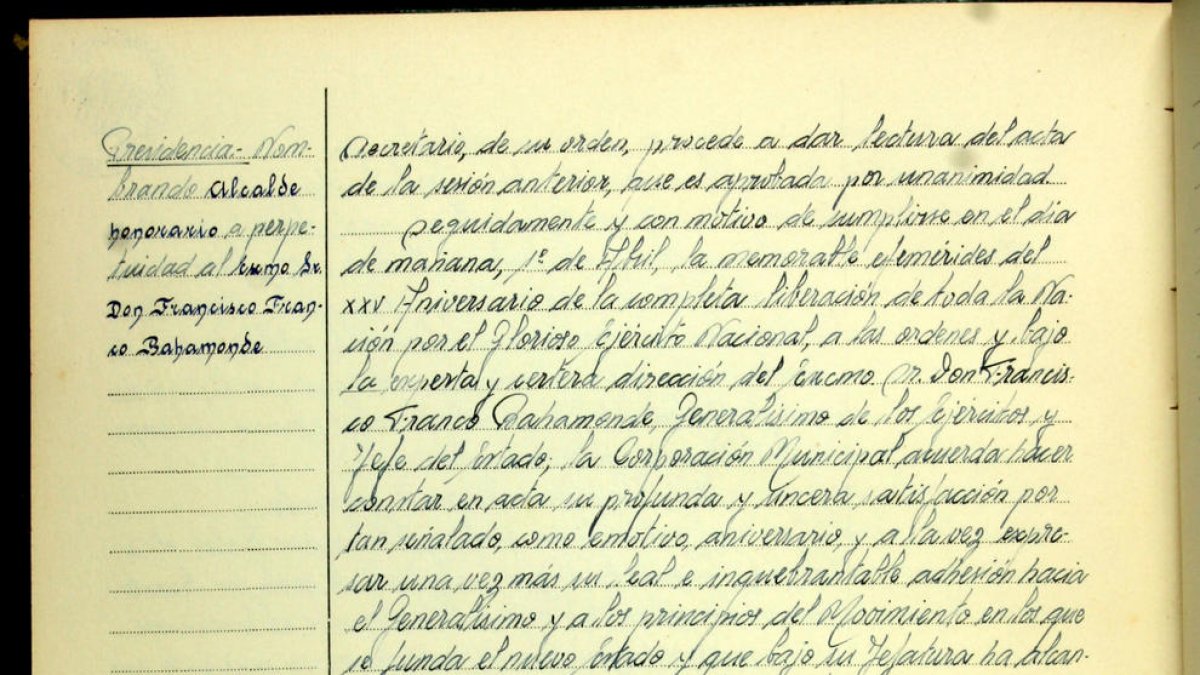 Presidencia.- Nom-
brando Alcalde
honorario a perpe-
tuidad al Excmo Sr.
Don Francisco Fran-
co Bahamonde
Secretario, de su orden, procede a dar lectura del acta
de la sesión anterior, que es aprobada por unanimidad.
Seguidamente y con motivo de cumplirse en el día
de mañana, 1º de Abril, la memorable efemérides del
XXV Aniversario de la completa liberación de toda la Na-
ción por el Glorioso Ejército Nacional, a las ordenes y bajo
la experta y certera dirección del Excmo Sr. Don Francis-
co Franco Bahamonde, Generalísimo de los Ejércitos y
Jefe del Estado, la Corporación Municipal, acuerda hacer
constar en acta su profunda y sincera satisfacción por
tan señalado, como emotivo, aniversario, y a la vez expre-
sar una vez más su leal e inquebrantable adhesión hacia
el Generalísimo y a los principios del Movimiento en los que
se funda el nuevo Estado y que bajo su Jefatura ha alcan-